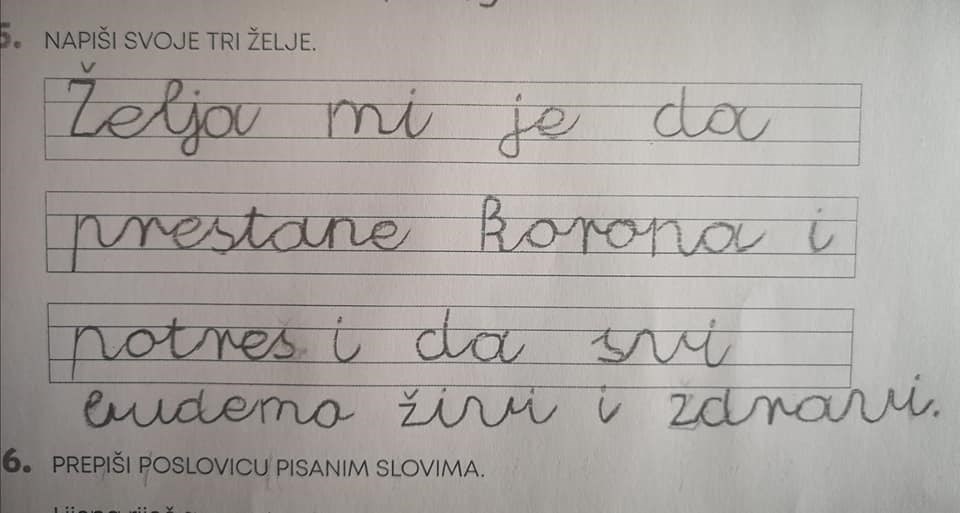 5. NAPIŠI SVOJE TRI ŽELJE.
Želja mi je da
prestane korona i
potres i da svi
budemo živi i zdravi.
6. PREPIŠI POSLOVICU PISANIM SLOVIMA.